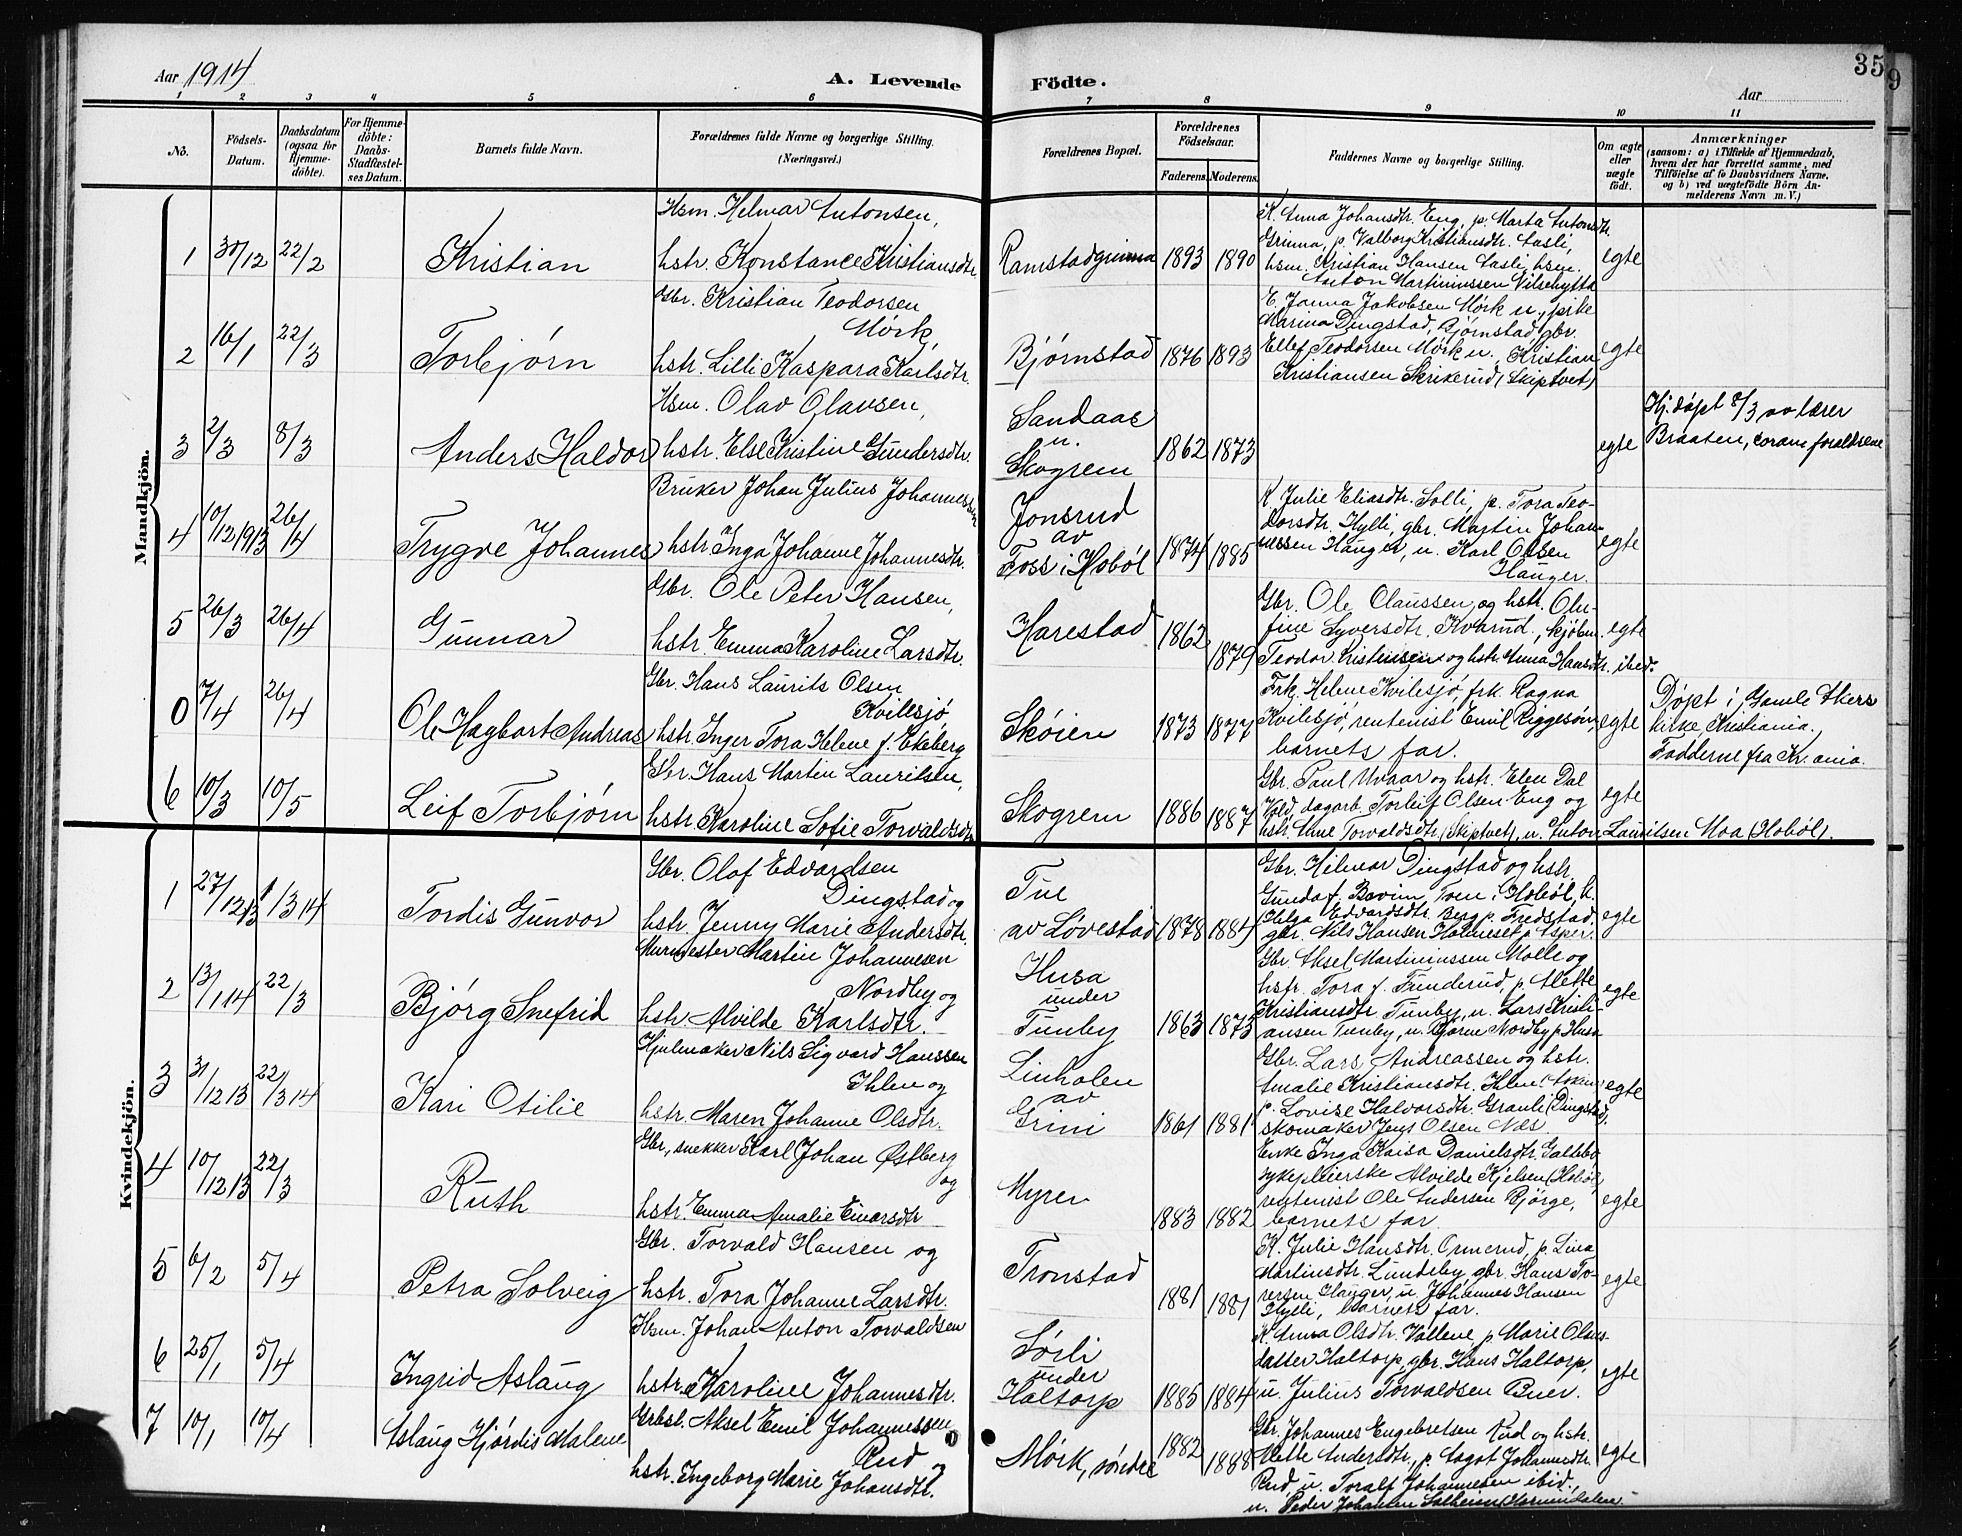 Aar 1914
A. Levende
Födte.
Aar
35
9
1 2 3 4 5 6 7 8 9 10 11
No.
Födsels-Datum.
Daabsdatum (ogsaa for Hjemme-döbte).
For Hjemme-döbte: Daabs-Stadfæstel-ses Datum.
Barnets fulde Navn.
Forældrenes fulde Navne og borgerlige Stilling.
(Næringsvei.)
Forældrenes Bopæl.
Forældrenes Födselsaar.
Faderens. Moderens.
Faddernes Navne og borgerlige Stilling.
Om ægte eller uægte födt.
Anmærkninger
(saasom: a) i Tilfælde af Hjemmedaab,
hvem der har forrettet samme, med
Tilföielse af to Daabsvidners Navne,
og b) ved uægtefödte Börn An-
melderens Navn m. V.)
Mandkjön.
1 30/12 22/2 Kristian
Hsm. Helmar Antonsen,
hstr. Konstance Kristiansdtr.
Ramstadgrinna 1893 1890
K. Anna Johansdtr. Eng, p. Marta Antonsdtr.
Grinna, p. Valborg Kristiansdtr. Lasli,
hsm. Kristian Hansen Lasli, hsm.
Anton Martiniussen Nilsehytta
egte
2 16/1 22/3 Torbjørn
Gbr. Kristian Teodorsen
Mørk,
hstr. Lilli Kaspara Karlsdtr.
Bjørnstad 1876 1893
E. Janna Jakobsen Mørk u., pike
Marina Dingstad, Bjørnstad, gbr.
Ellef Teodorsen Mørk u., Kristian
Kristiansen Skrikerud (Skiptvet)
egte
3 2/3 8/3 Anders Haldor
Hsm. Olav Olausen,
hstr. Else Kristine Gundersdtr.
Sandaas
u.
Skogrem 1862 1873
egte
Hj.døpt 8/3 av lærer
Braaten, coram forældrene
4 10/12 1913 26/4 Trygve Johannes
Bruker Johan Julius Johannessen
hstr. Inga Johanne Johannesdtr.
Jonsrud
av
Foss i Hobøl 1874 1885
K. Julie Eliasdtr. Solli, p. Tora Teo-
dorsdtr. Hylli, gbr. Martin Johan-
nessen Hauger, u. Karl Olsen
Hauger.
egte
5 26/3 26/4 Gunnar
Gbr. Ole Peter Hansen,
hstr. Emma Karoline Larsdtr.
Harestad 1862 1879
Gbr. Ole Claussen og hstr. Olu-
fine Syversdtr. Kvarud,
Teodor Kristiansen og hstr. Anna Hansdtr. ibid.
egte
0 7/4 26/4 Ole Hagbart Andreas
Gbr. Hans Laurits Olsen
Kvilesjø,
hstr. Inger Tora Helene f. Ekeberg
Skøien 1873 1877
Frk. Helene Kvilesjø, frk. Ragna
Kvilesjø, rentenist Emil
barnets far.
egte
Døpt i Gamle Akers
kirke Kristiania.
Fadderne fra Kr.ania.
6 10/3 10/5 Leif Torbjørn
Gbr. Hans Martin Lauritsen,
hstr. Karoline Sofie Torvaldsdtr.
Skogrem 1886 1887
Gbr. Paul Uvaar og hstr. Elen Dal
Vold, dagarb. Torleif Olsen Eng og
hstr. Anne Torvaldsdtr. (Skiptvet), u. Anton Lauritsen Moa (Hobøl).
egte
Kvindekjön.
1 27/12 13 1/3 14 Tordis Gunvor
Gbr. Olaf Edvardsen
Dingstad og
hstr. Jenny Marie Andersdtr.
Tue
av Løvestad 1878 1884
Gbr. Hilmar Dingstad og hstr.
Gunda f. Bovim, Tuen i Hobøl, k.
Helga Edvardsdtr. Berg p. Fredstad,
gbr. Nils Hansen Holmeset p. Asper.
egte
2 13/1 14 22/3 Bjørg Snefrid
Murmester Martin Johannesen
Nordby og
hstr. Alvilde Karlsdtr.
Husa
under
Tunby 1863 1873
Gbr. Aksel Martiniussen Molle og
hstr. Tora f. Funderud, p. Alette
Kristiansdtr. Tunby, u. Lars Kristi-
ansen Tunby, u. Bjarne Nordby p. Husa
egte
3 31/12 13 22/3 14 Kari Otilie
Hjulmaker Nils Sigvard Hanssen
Ihlen og
hstr. Maren Johanne Olsdtr.
Linholen
av
Grini 1861 1881
Gbr. Lars Andreassen og hstr.
Amalie Kristiansdtr. Ihlen (Askim)
p. Lovise Halvorsdtr. Granli (Dingstad),
skomaker Jens Olsen Næs
egte
4 10/12 13 22/3 Ruth
Gbr., snekker Karl Johan Østberg
og
hstr. Emma Amalie Einarsdtr
Myrer 1883 1882
Enke Inga Kaisa Danielsdtr. Galtebo
sykepleierske Alvilde Kjelsen (Hobøl)
rentenist Ole Andersen Bjørge,
barnets far.
egte
5 6/2 5/4 Petra Solveig
Gbr. Torvald Hansen og
hstr. Tora Johanne Larsdtr.
Tronstad 1881 1881
K. Julie Hansdtr. Ormerud, p. Lina
Martinsdtr. Lundeby, gbr. Hans To-
rersen Hauger, u. Johannes Hansen
Hylli, barnets far.
egte
6 25/1 5/4 Ingrid Aslaug
Hsm. Johan Anton Torvaldsen
hstr. Karoline Johannesdtr.
Sørli
under
Haltorp 1885 1884
K. Anna Olsdtr. Vallene, p. Marie Olsens-
datter Haltorp, gbr. Hans Haltorp,
u. Julius Torvaldsen Buer.
egte
7 10/1 10/4 Aslaug Hjørdis Malene
Grbsl. Aksel Emil Johannessen
Rud og
hstr. Ingeborg Marie Johansdtr.
Mørk, søndre 1882 1888
Gbr. Johannes Engebretsen Rud og hstr.
Mette Andersdtr., p. Aagot Johannesdtr.
Rud, u. Toralf Johannesen ibid.,
u. Peder Johansen Solheim
egte